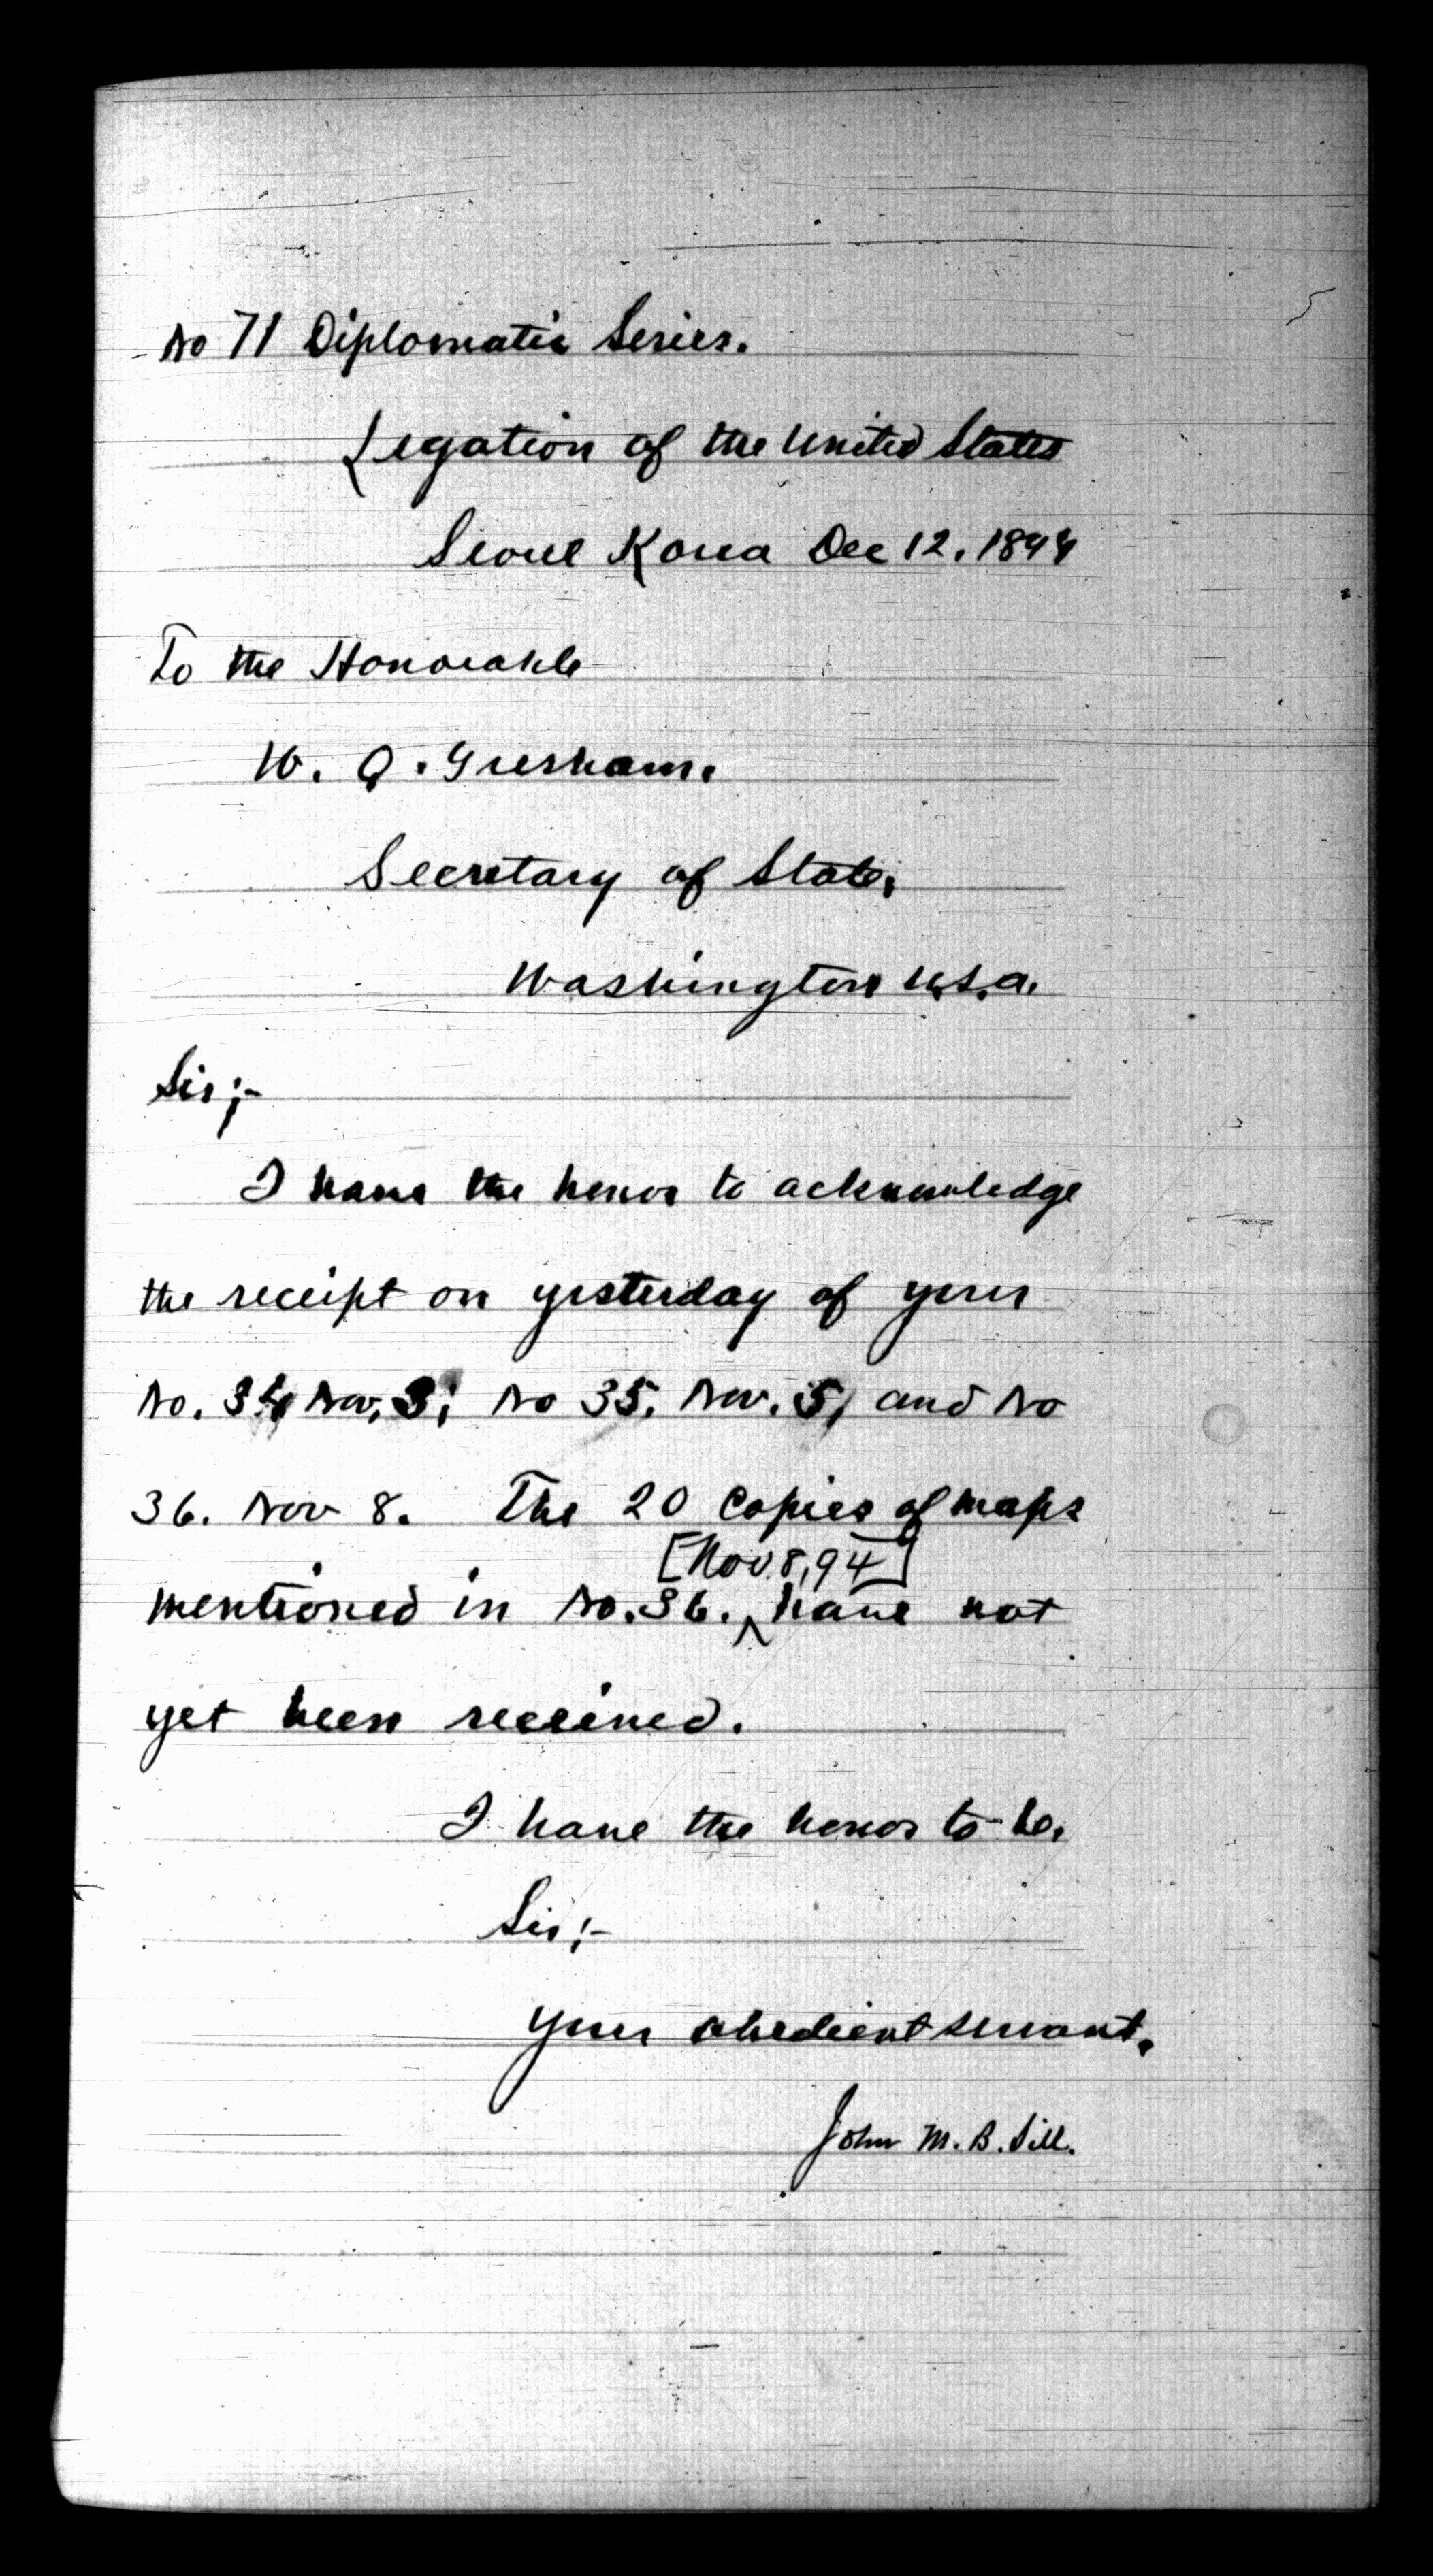 No 71 Diplomatic Series.
Legation of the United States
Seoul Korea Dec 12. 1894
To the Honorable
W. Q. Gresham.
Secretary of State,
Washington U.S.A.
Sir;-
I have the honor to acknowledge
the receipt on yesterday of your
No. 34 Nov. 3; No 35, Nov. 5, and No
36. Nov 8. The 20 copies of maps
[Nov. 8, 94]
mentioned in No. 36. ^ have not
yet been received.
I have the honor to be,
Sir;-
Your obedient servant,
John M. B. Sill.